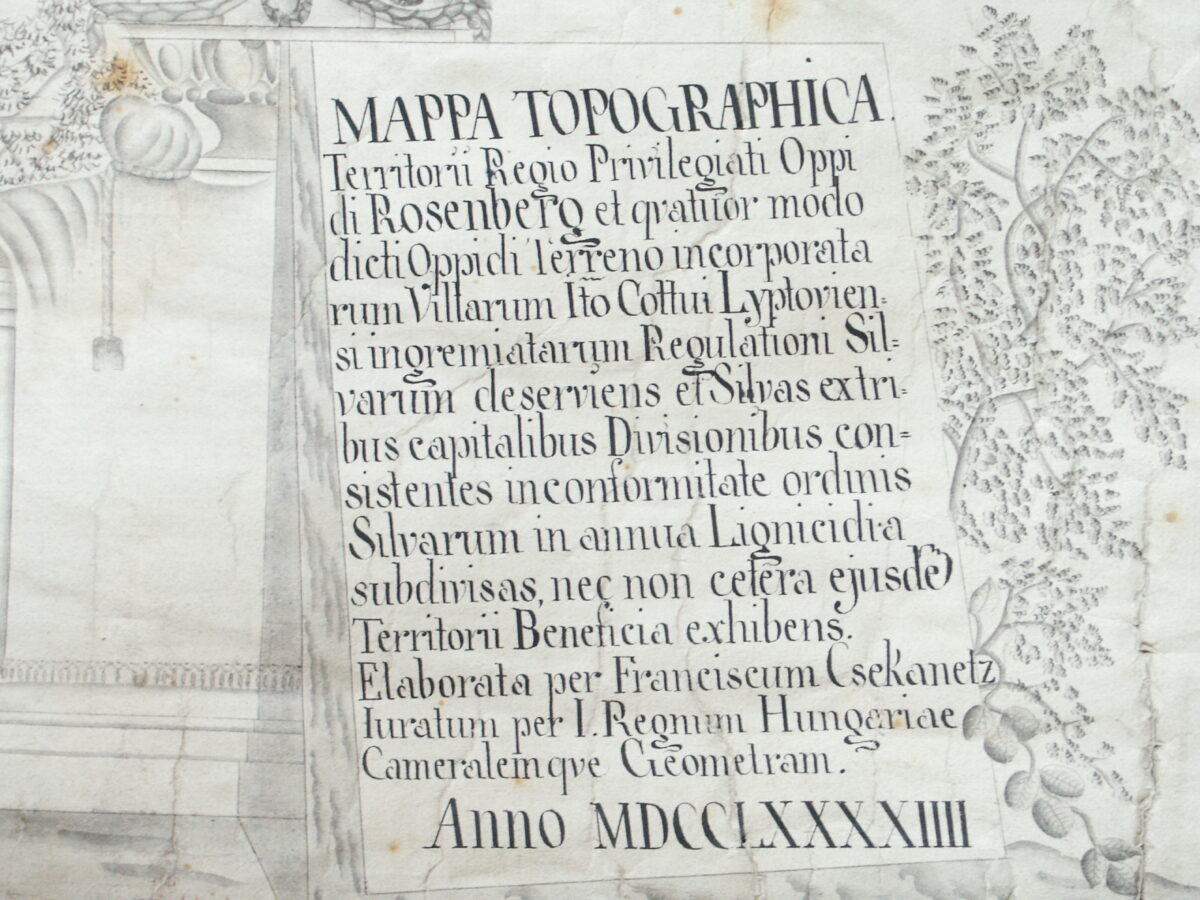 MAPPA TOPOGRAPHICA.
Territorii Regio Privilegiati Oppi
di Rosenberg et qvatuor modo
dicti Oppidi Terreno incorporata
rum Villarum Itõ Cottui Lyptovien=
si ingremiatarum Regulationi Sil=
varum deserviens et Silvas ex tri=
bus capitalibus Divisionibus con=
sistentes in conformitate ordinis
Silvarum in annua Lignicidia
subdivisas, nec non cetera ejusdẽ
Territorii Beneficia exhibens.
Elaborata per Franciscum Csekanetz
Iuratum per I. Regnum Hungariae
Cameralemqve Geometram.
Anno MDCCLXXXXIIII